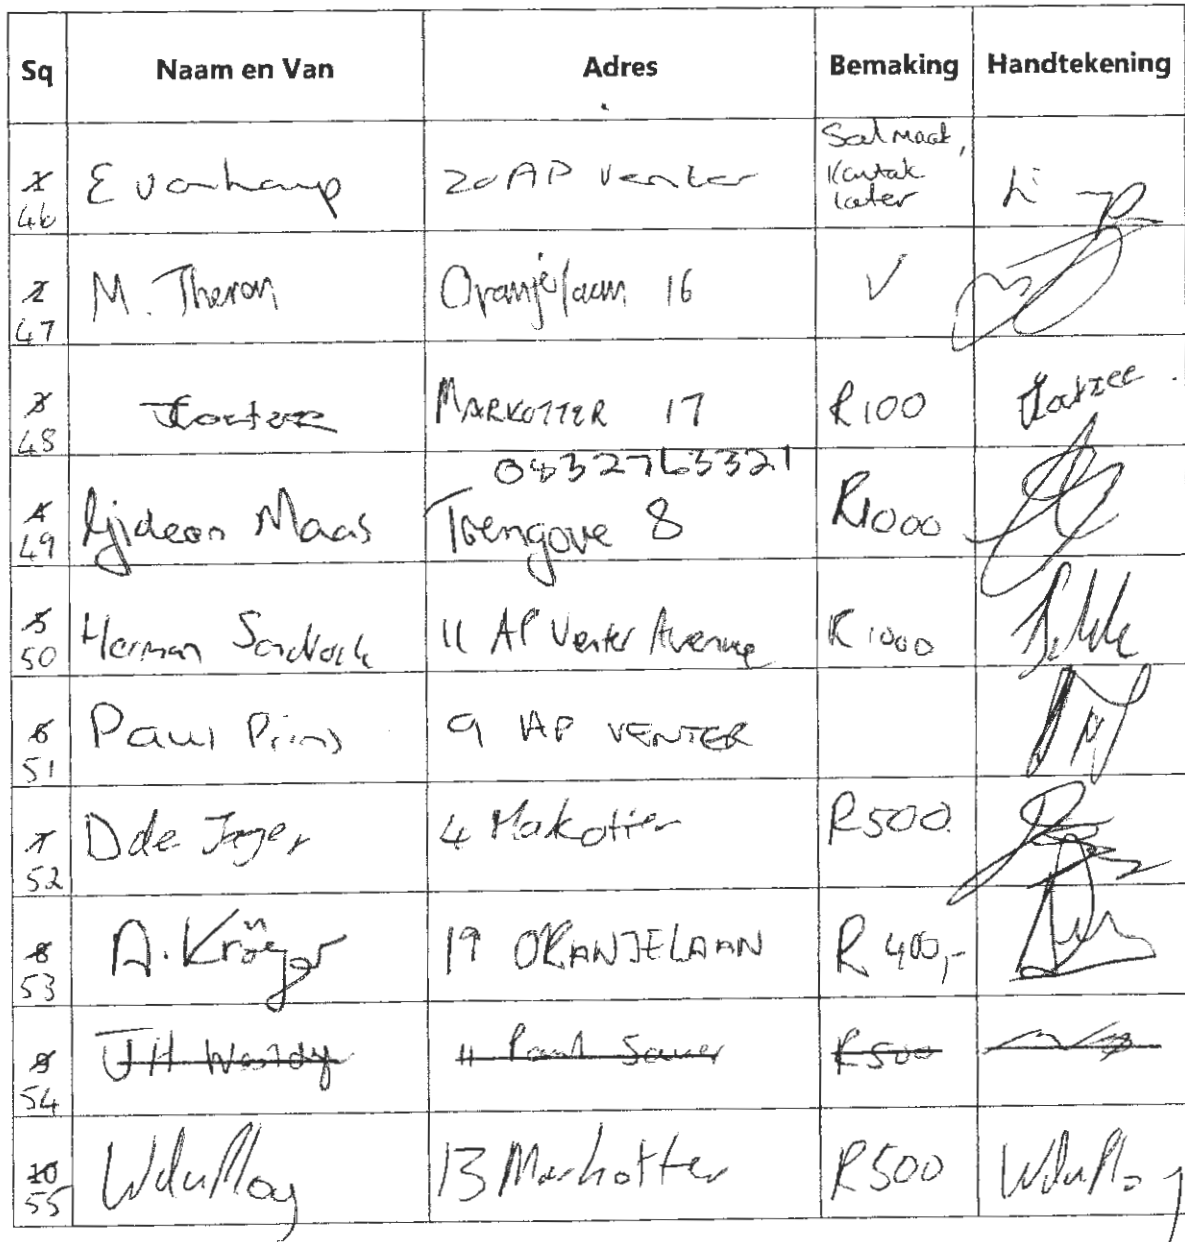 Sq Naam en Van Adres Bemaking Handtekening
1 46 E vanhamp 20 AP Venter Sal maak, Kontak later
2 47 M. Theron Oranjelaan 16 ✓
3 48 J Coetzee MARKOTTER 17 R100 JCoetzee
0832763321
4 49 Gideon Maas Trengove 8 R1000
5 50 Herman 11 AP Venter Avenue R1000
6 51 Paul Prins 9 AP VENTER
7 52 D de Jager 4 Makotter R500
8 53 A. Kröger 19 ORANJELAAN R 400,-
9 54 JH 11 Paul Sauer R500
10 55 W du Ploy 13 Markotter R500 W du Ploy